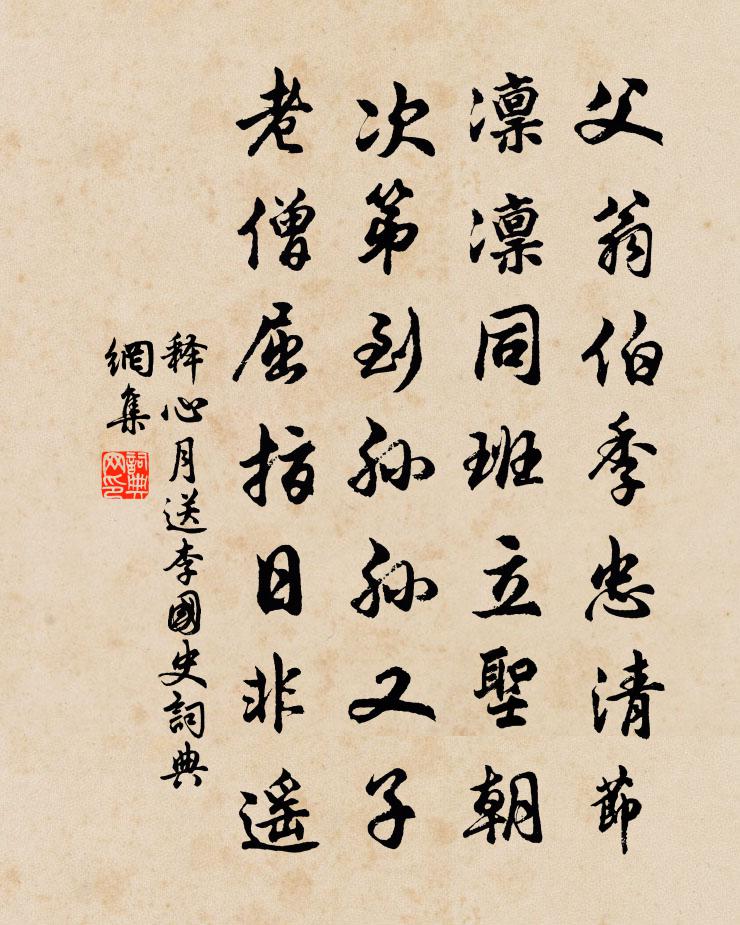 父翁伯季忠清節
凛凛同班立聖朝
次第到孙孙又子
老僧屈指日非遥
释心月送李國史詞典
網集
詞典
网印